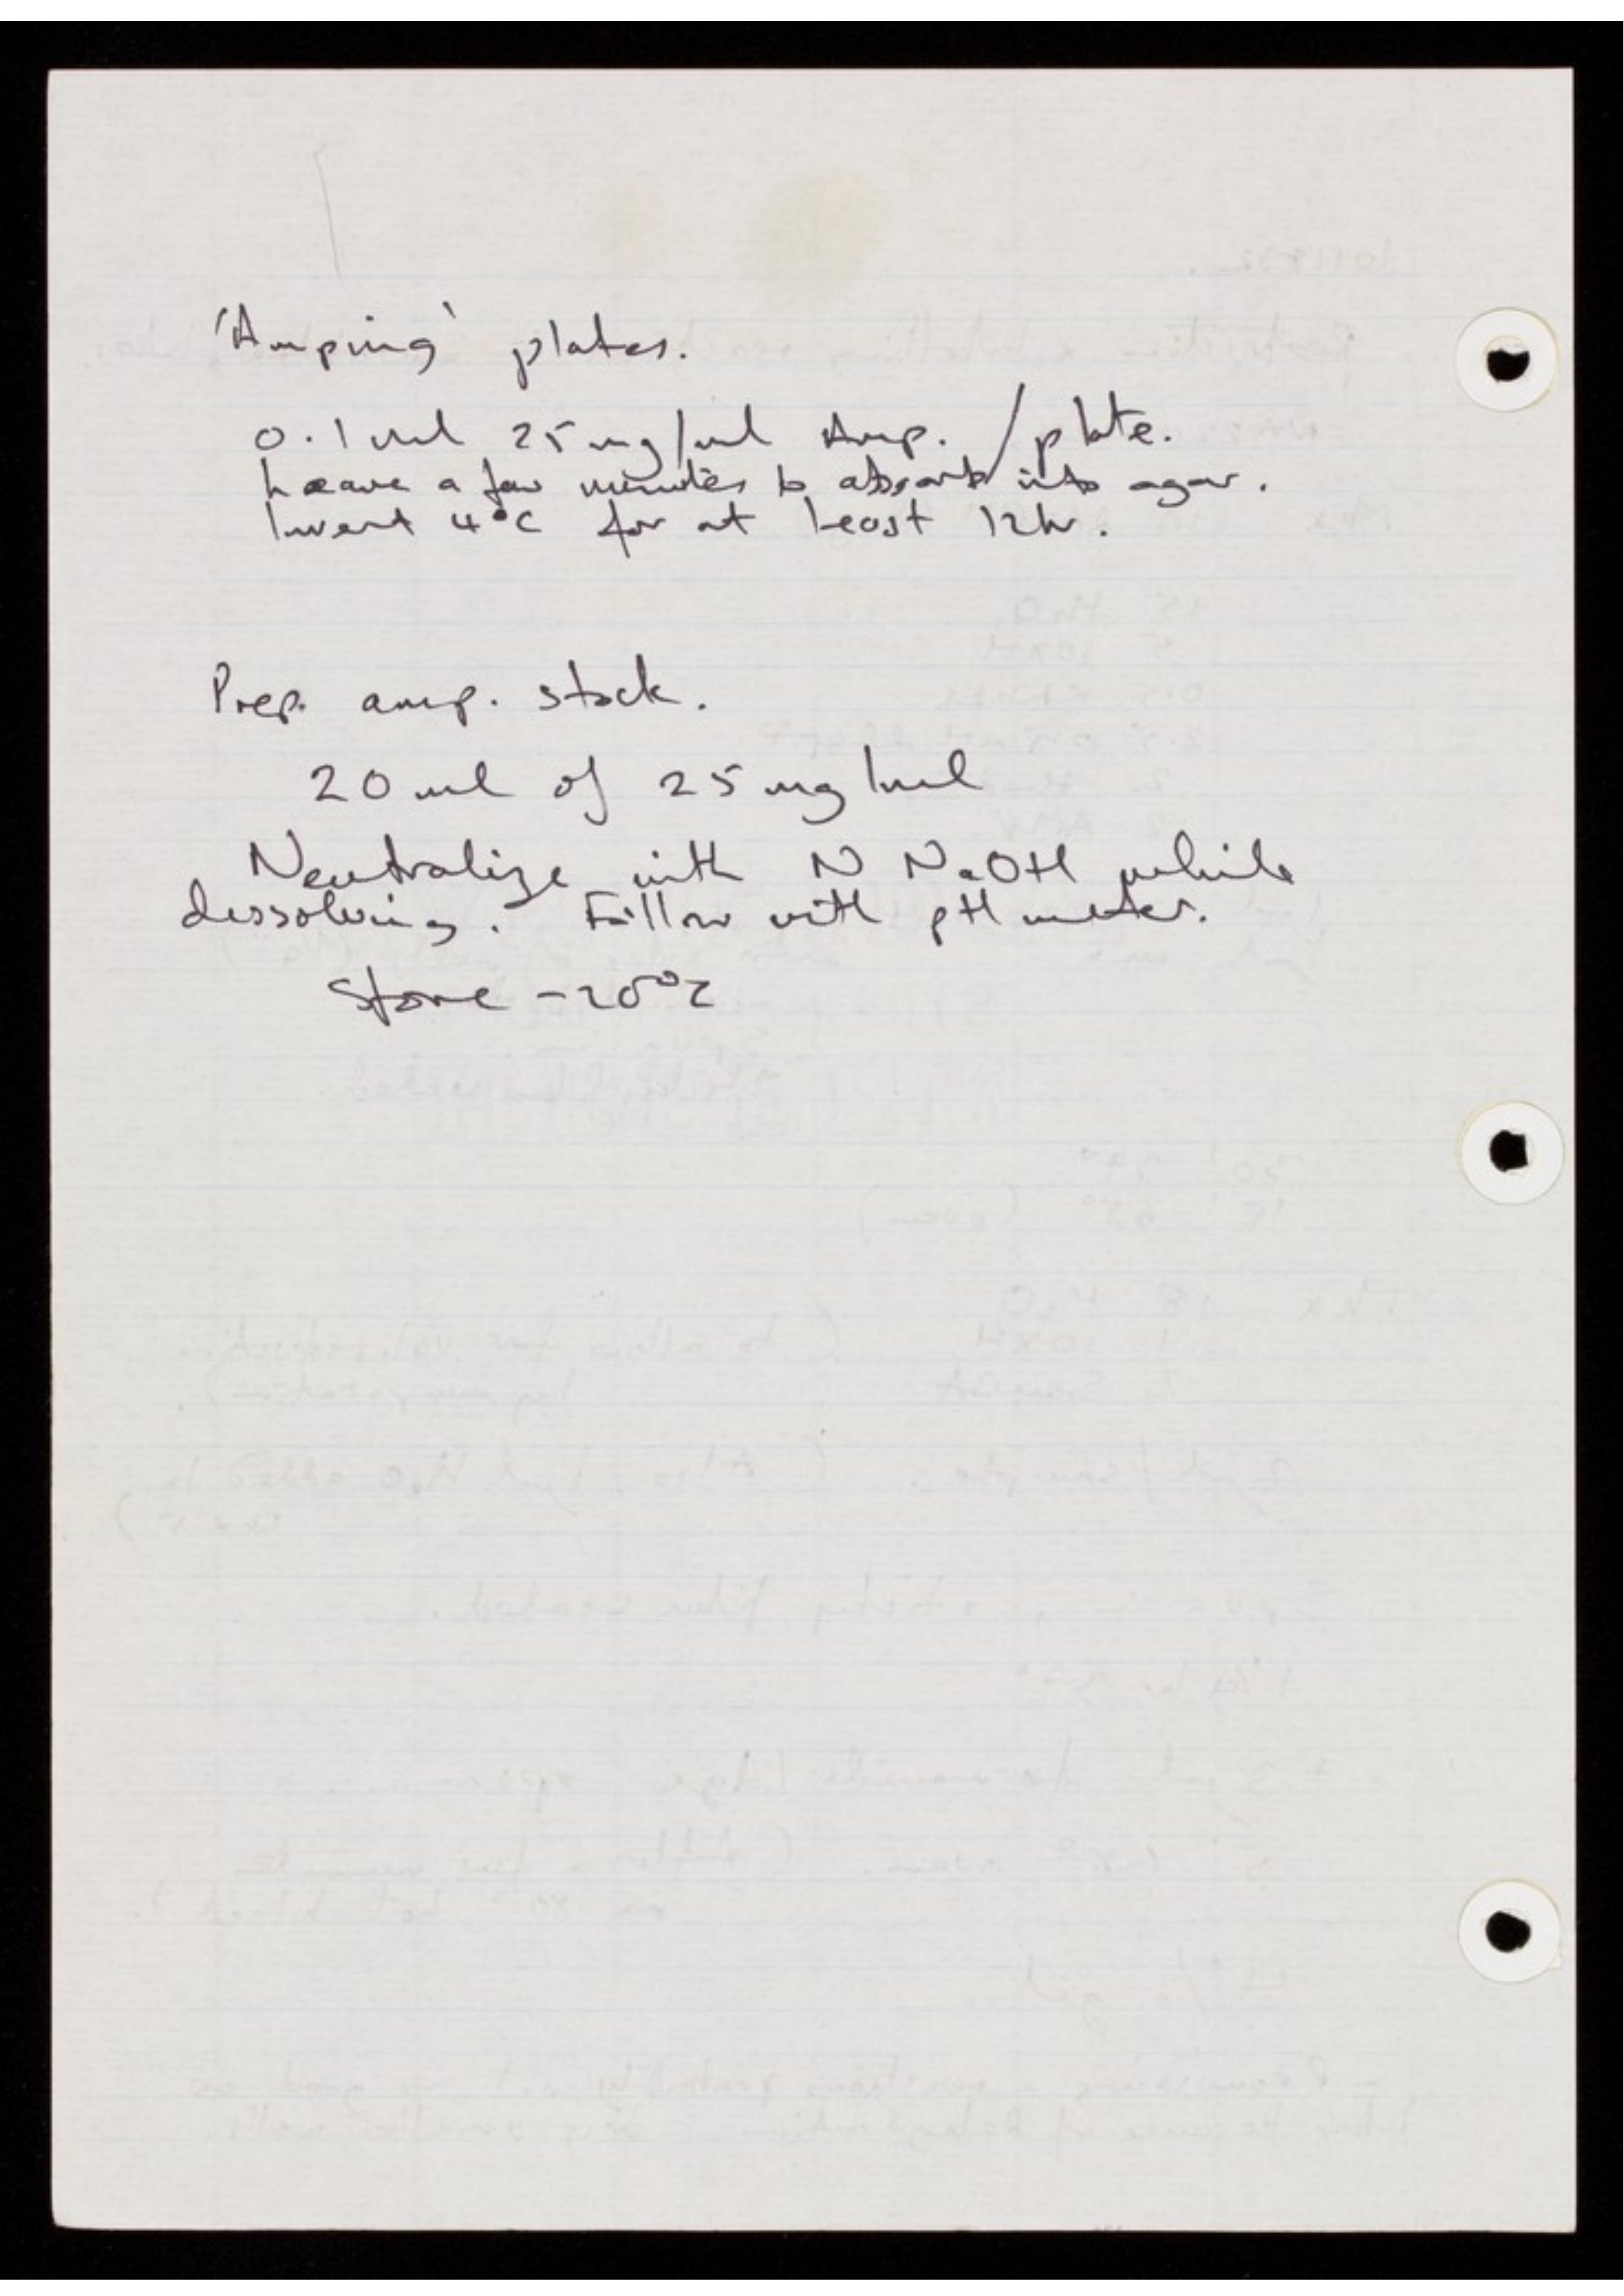 'Amping' plates.
0.1 ml 25 mg/ml Amp. /plate.
Leave a few minutes to absorb into agar.
Invert 4°C for at least 12hr.
Prep. amp. stock.
20 ml of 25 mg/ml
Neutralize with N NaOH while
dissolving. Follow with pH meter.
Store -20°C